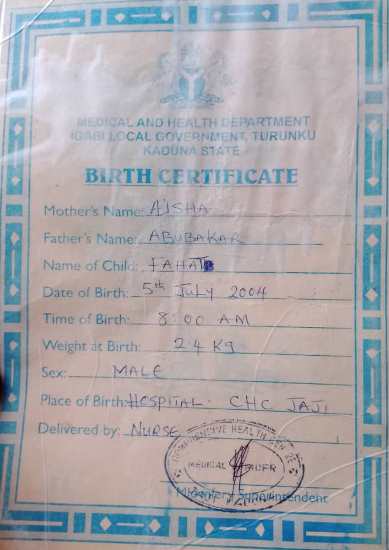 MEDICAL AND HEALTH DEPARTMENT
IGABI LOCAL GOVERNMENT, TURUNKU
KADUNA STATE
BIRTH CERTIFICATE
Mother's Name: A'ISHA
Father's Name: ABUBAKAR
Name of Child:
Date of Birth: 5th July 2004
Time of Birth: 8:00 AM
Weight at Birth: 2.4 Kg
Sex: MALE
Place of Birth: HOSPITAL. CHC JAJI
Delivered by: NURSE
COMPREHENSIVE HEALTH
MEDICAL